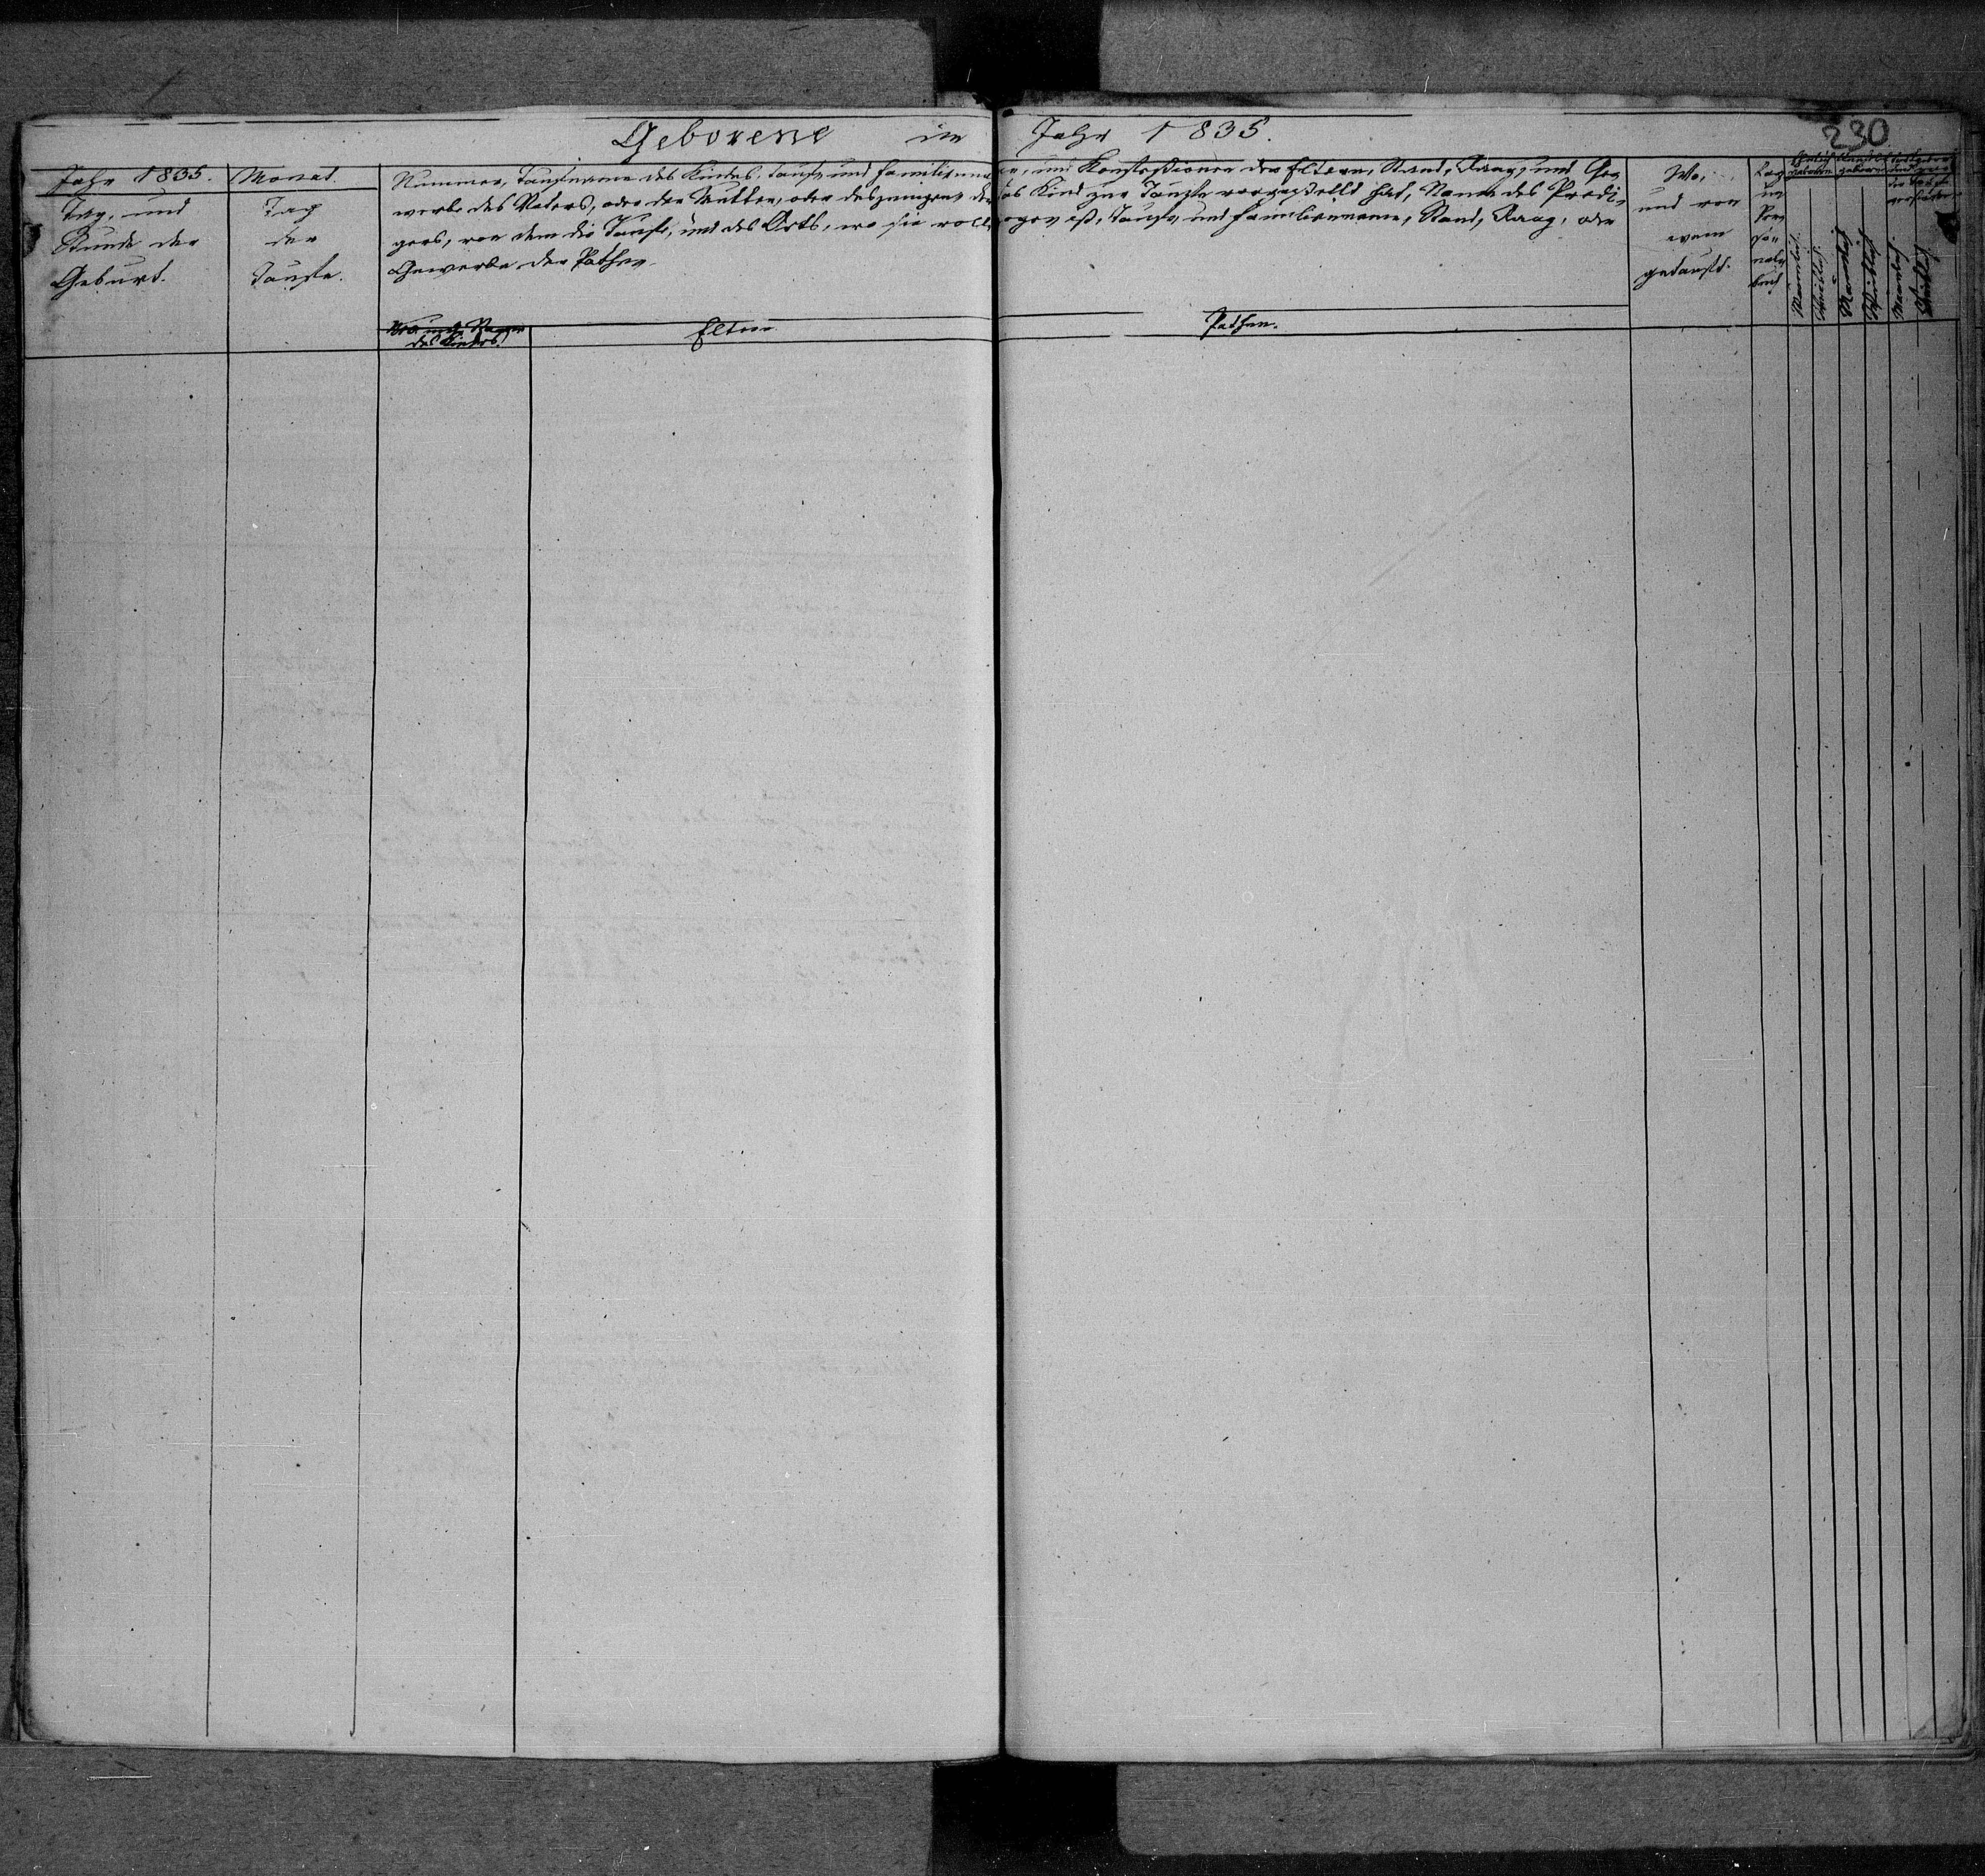 230
Geborene im Jahr 1835.
Jahr 1835.
Tag, und
Stunde der
Geburt.
Monat.
Tag
der
Taufe.
Nummer, Taufname des Kindes. Tauf- und Familienname, und Konfessionen der Eltern, Stand, Rang, und Ge-
werbe des Vaters, oder der Mutter, oder desjenigen, der das Kind zur Taufe vorgestellt hat, Name des Predi-
gers, von dem die Taufe, und des Orts, wo sie vollzogen ist, Tauf- und Familienname, Stand, Rang, oder
Gewerbe der Pathen.
Wo,
und von
wem
getauft.
Tag
geboren
geboren
Männlich.
Weiblich.
Männlich
Weiblich
Männlich
Weiblich
des Kindes.
Eltern
Pathen.